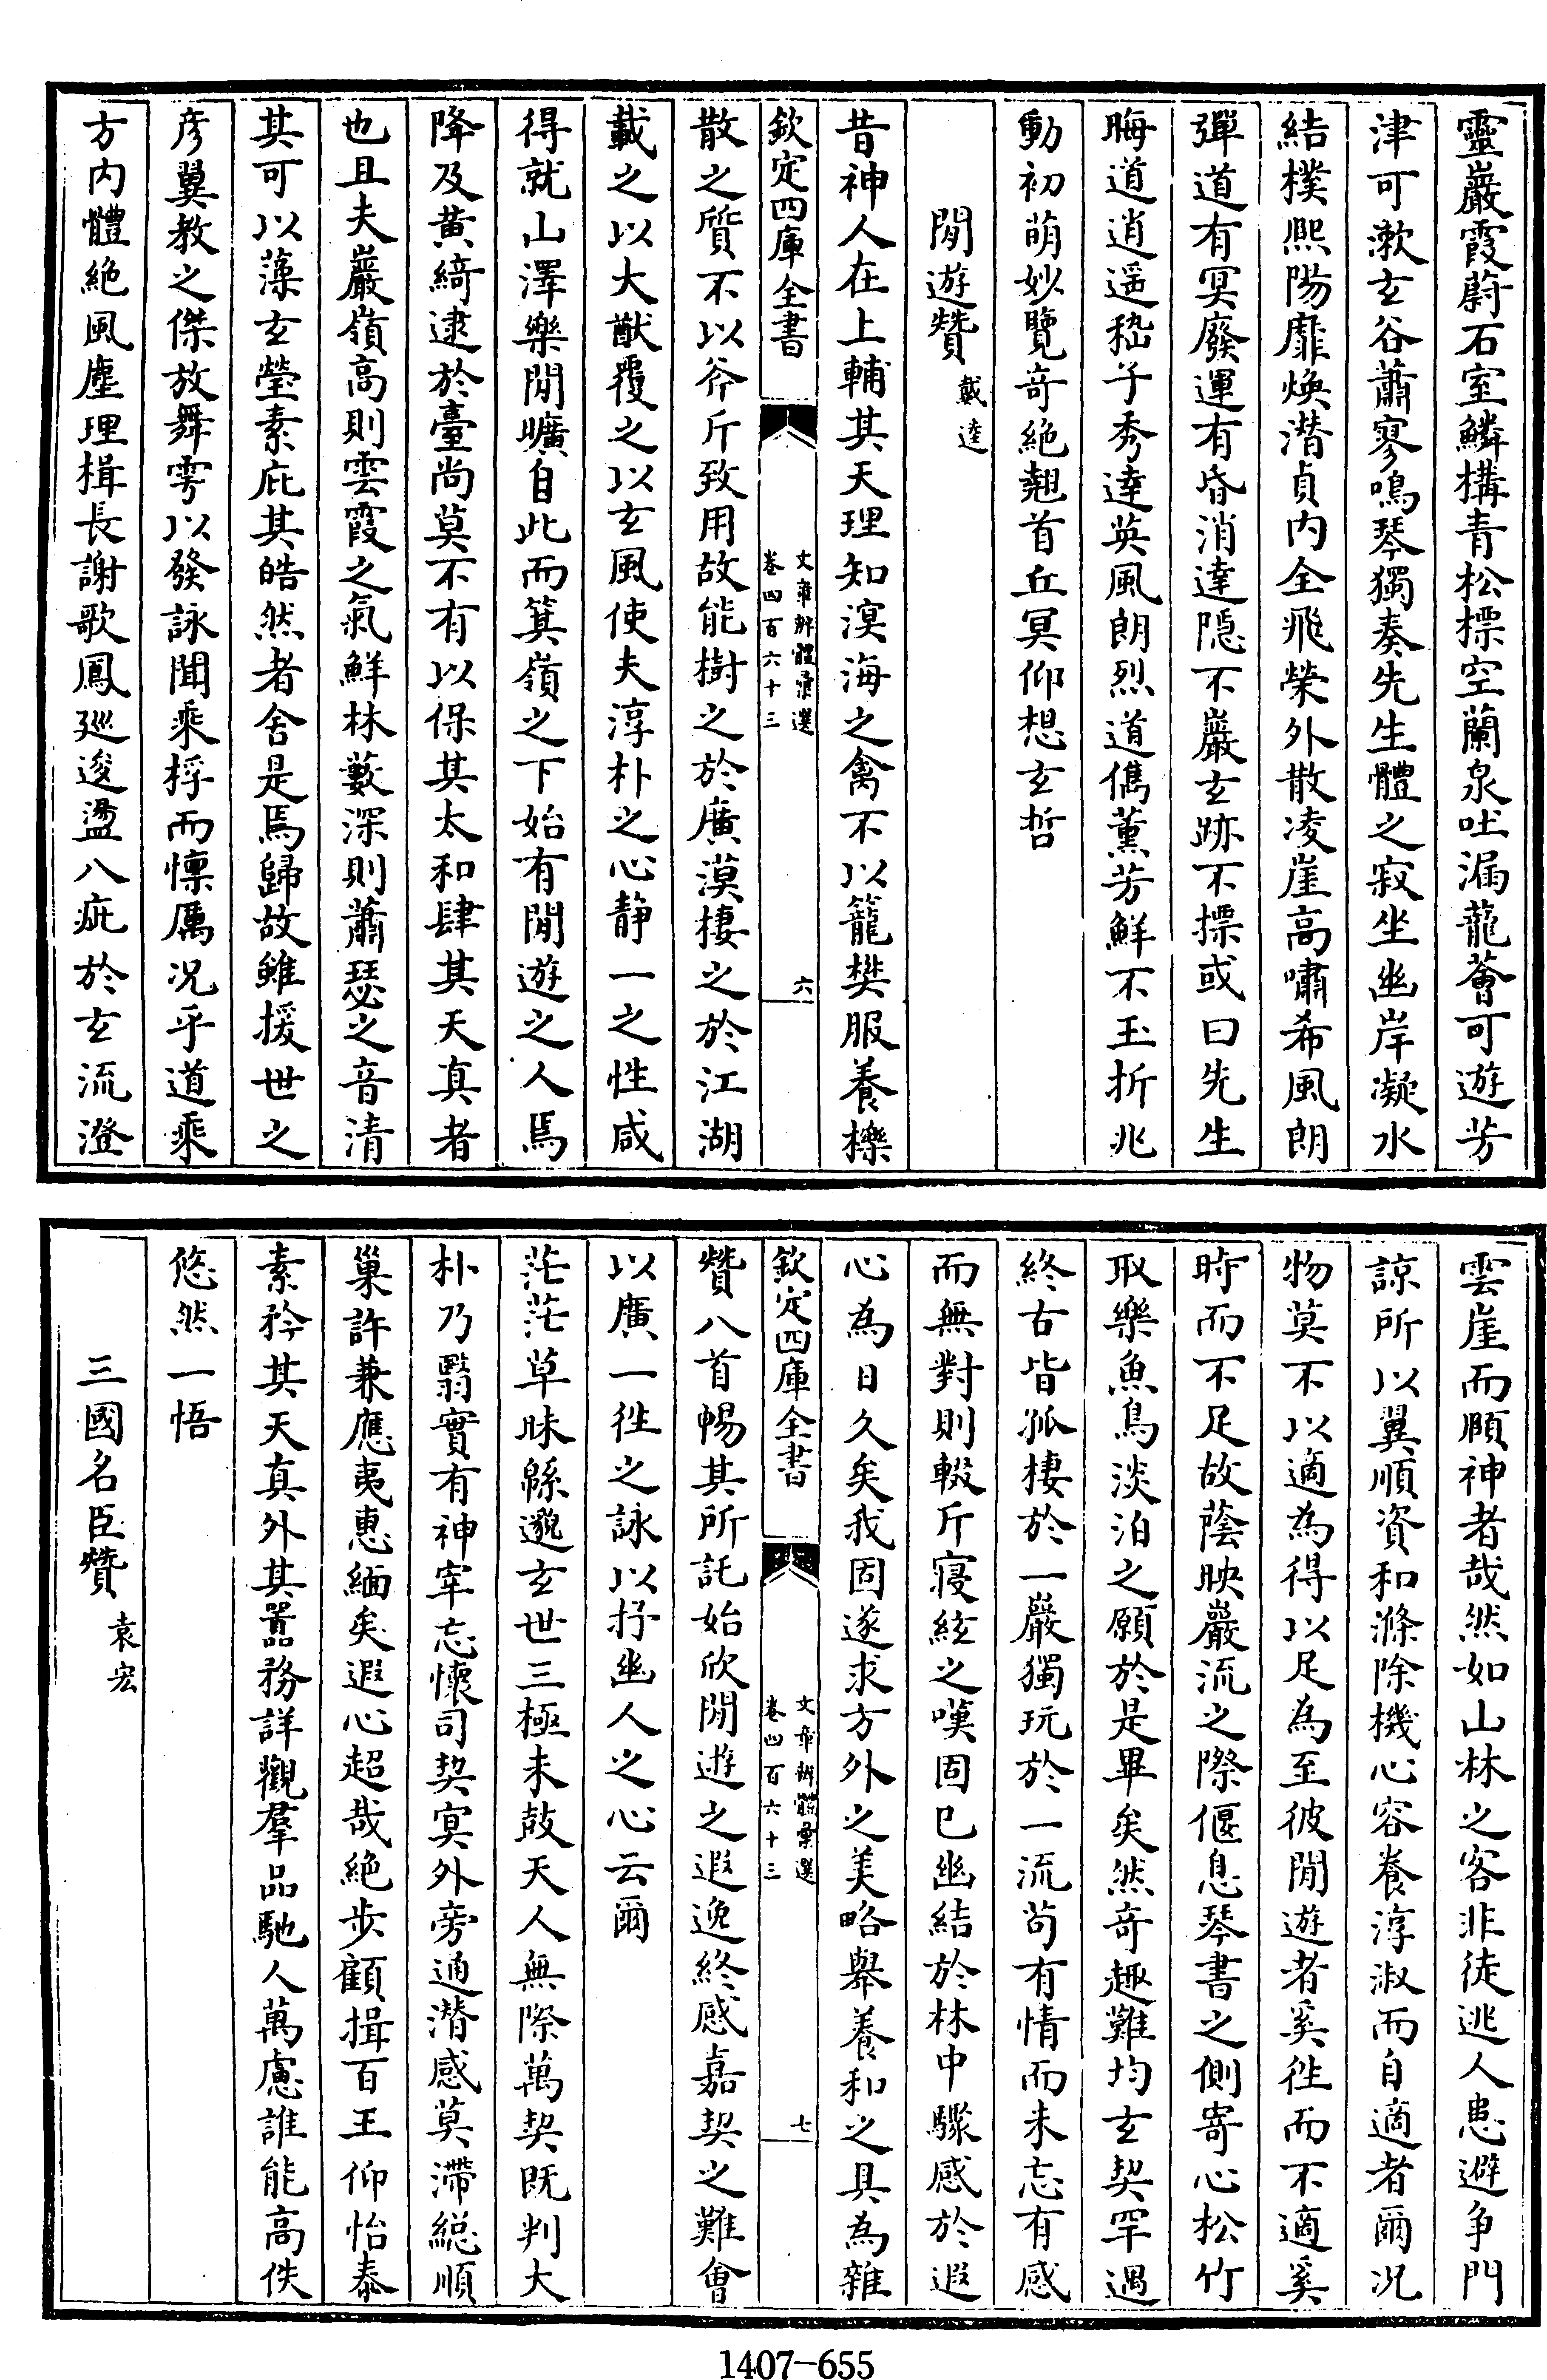 靈巖霞蔚石室鱗構青松標空蘭泉吐漏蘢薈可遊芳
津可漱玄谷蕭寥鳴琴獨奏先生體之寂坐幽岸凝水
結樸熙陽靡煥潛貞内全飛榮外散凌崖高嘯希風朗
彈道有冥廢運有昏消達隱不巖玄跡不摽或曰先生
晦道逍遥嵇子秀達英風朗烈道儁薫芳鮮不玉折兆
動初萌妙覽奇絶翹首丘冥仰想玄哲
閒遊贊 戴逵
昔神人在上輔其天理知溟海之禽不以籠樊服養櫟
欽定四庫全書
文章辨體彙選
卷四百六十三
六
散之質不以斧斤致用故能樹之於廣漠棲之於江湖
載之以大猷覆之以玄風使夫淳朴之心静一之性咸
得就山澤樂閒曠自此而箕嶺之下始有閒遊之人焉
降及黄綺逮於臺尚莫不有以保其太和肆其天真者
也且夫巖嶺高則雲霞之氣鮮林藪深則蕭瑟之音清
其可以藻玄瑩素庇其皓然者舍是焉歸故雖援世之
彦翼教之傑放舞雩以發詠聞乘桴而懍厲况乎道乘
方内體絶風塵理楫長謝歌鳳廵逡盪八疵於玄流澄
雲崖而頤神者哉然如山林之客非徒逃人患避争門
諒所以翼順資和滌除機心容養淳淑而自適者爾况
物莫不以適為得以足為至彼閒遊者奚徃而不適奚
時而不足故蔭映巖流之際偃息琴書之側寄心松竹
取樂魚鳥淡泊之願於是畢矣然奇趣難均玄契罕遇
終古皆孤棲於一巖獨玩於一流苟有情而未忘有感
而無對則輟斤寢絃之嘆固已幽結於林中驟感於遐
心為日久矣我固遂求方外之美略舉養和之具為雜
欽定四庫全書
文章辨體彙選
卷四百六十三
七
贊八首暢其所託始欣閒遊之遐逸終感嘉契之難會
以廣一徃之詠以抒幽人之心云爾
茫茫草昧緜邈玄世三極未鼓天人無際萬契既判大
朴乃翳實有神宰忘懷司契寘外旁通潜感莫滯總順
巢許兼應夷惠緬矣遐心超哉絶步顧揖百王仰怡泰
素矜其天真外其囂務詳觀羣品馳人萬慮誰能高佚
悠然一悟
三國名臣贊 袁宏
1407-655